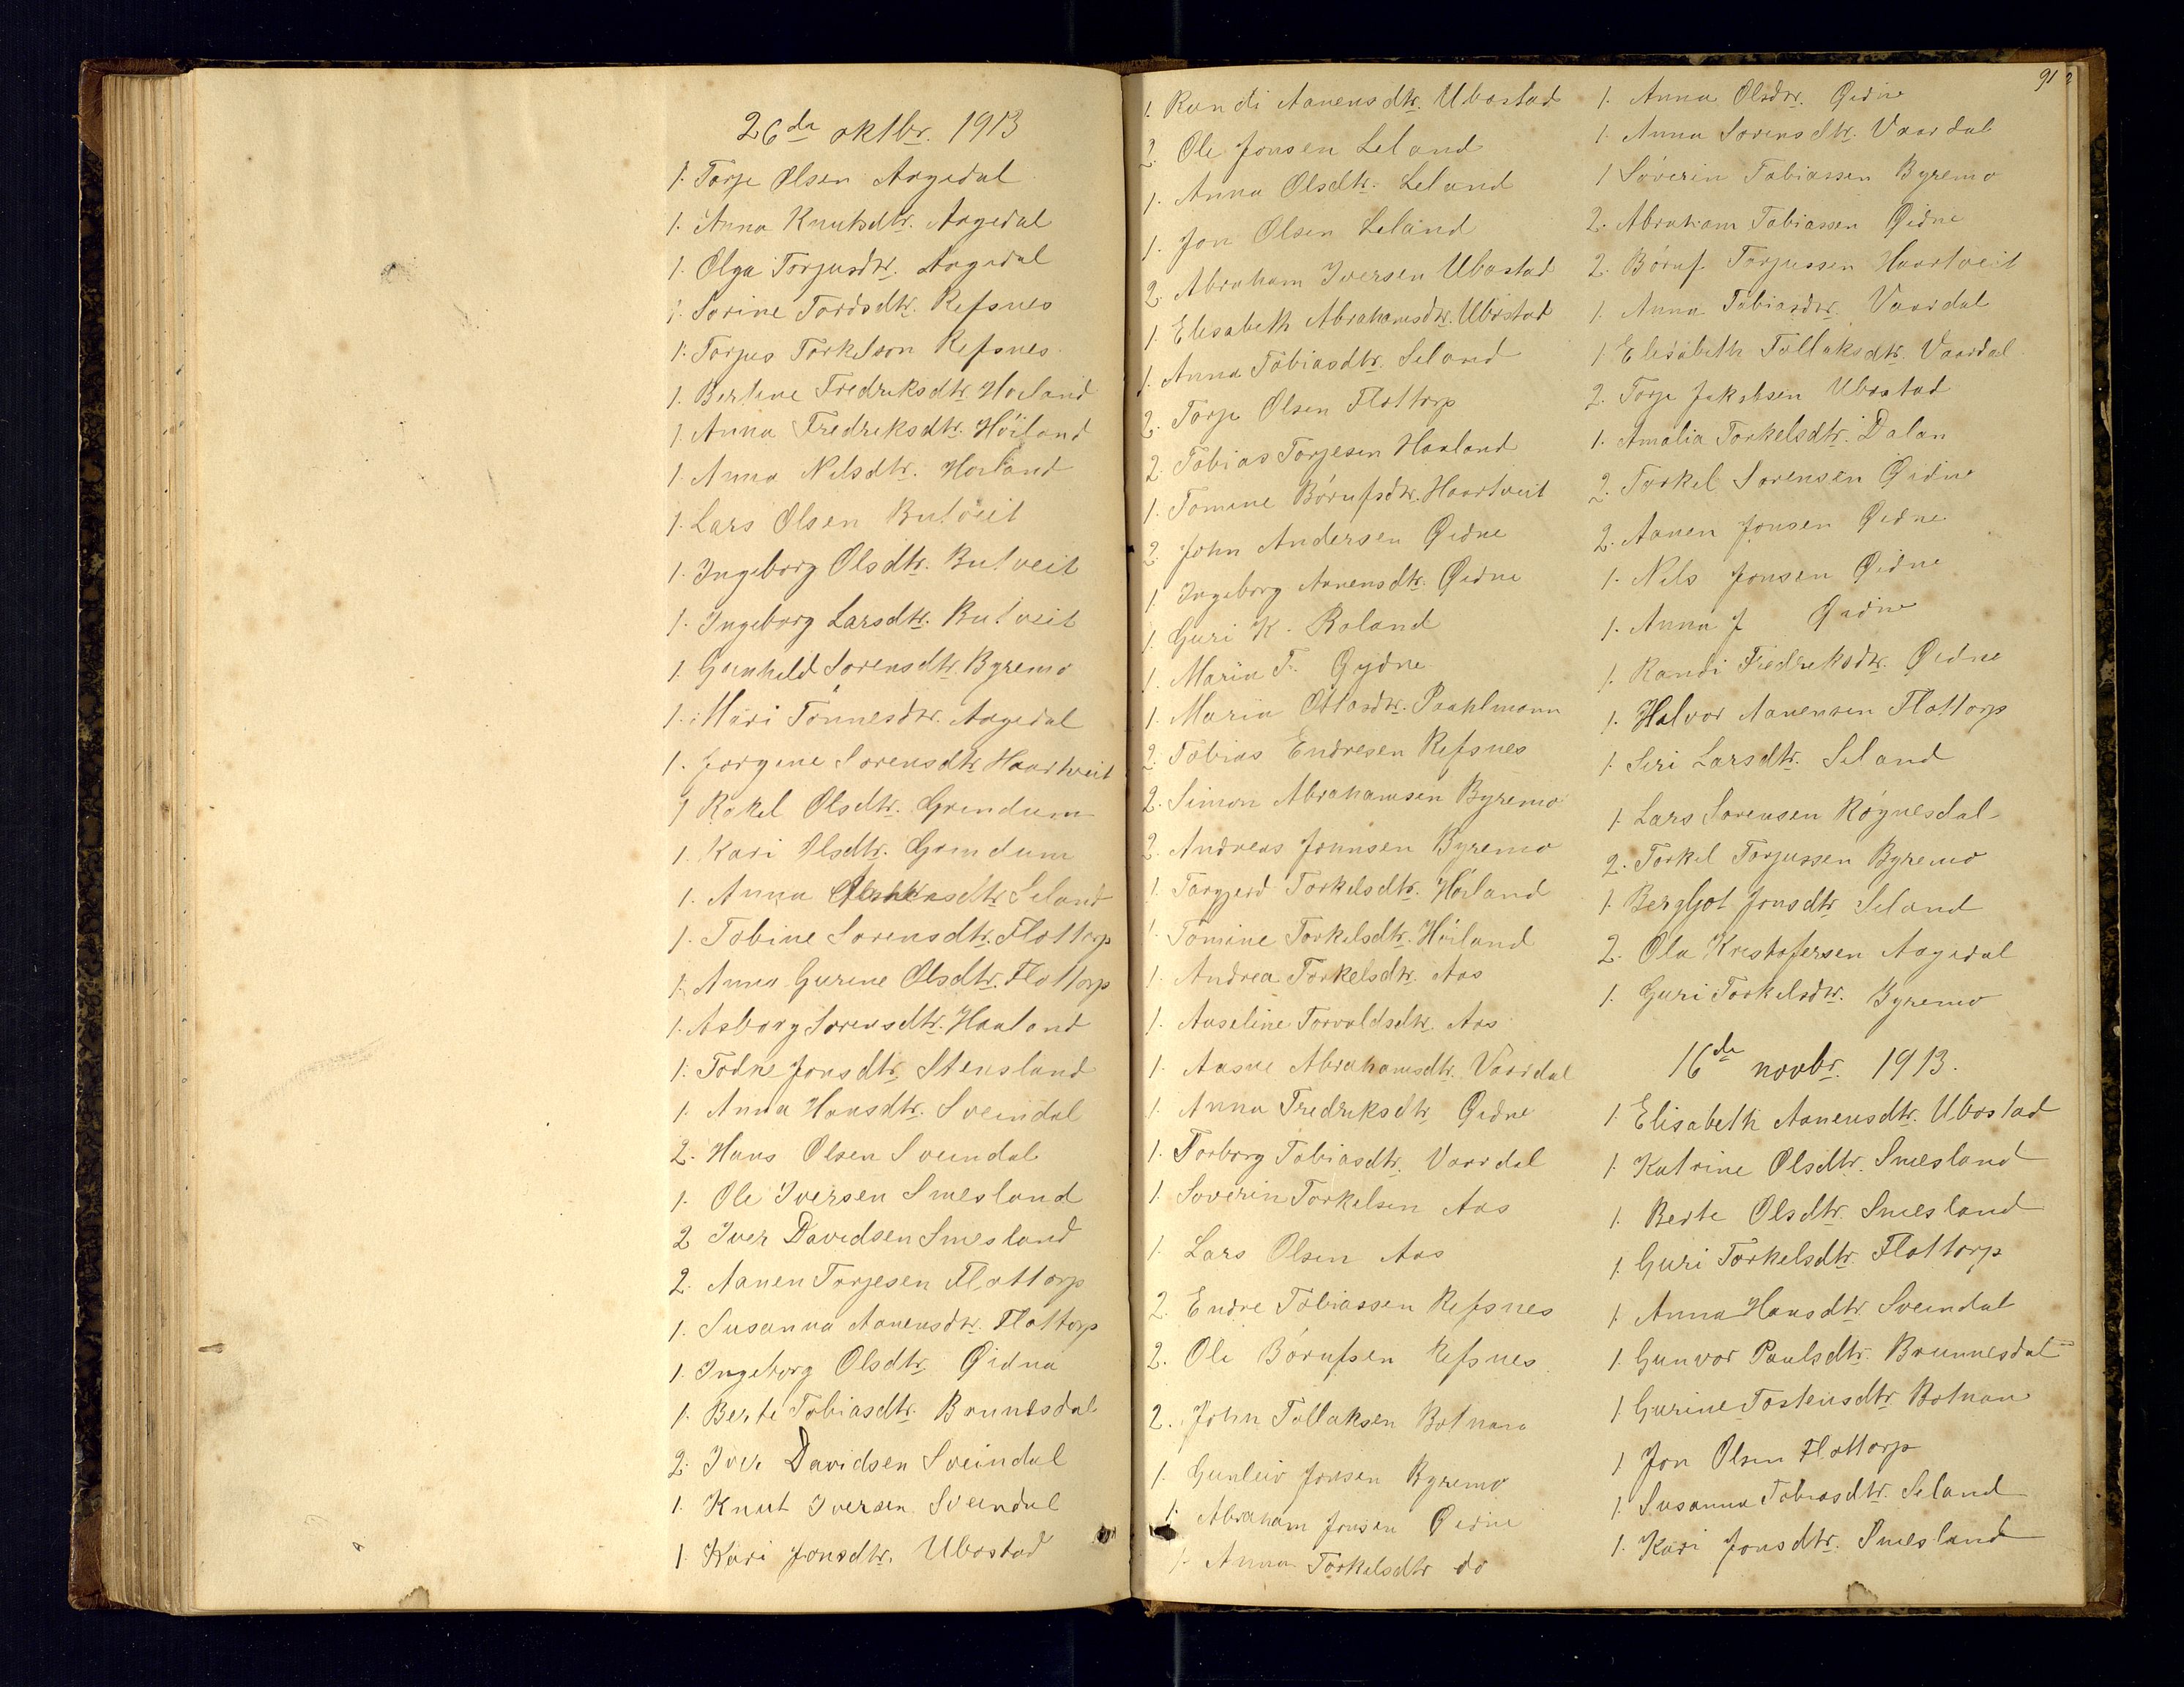 26de oktbr. 1913
1. Torje Olsen Aagedal
1. Anna Knutsdtr. Aagedal
1. Olga Torjusdtr. Aagedal
1. Sorine Tordsdtr. Refsnes
1. Torjus Torkelson Refsnes
1. Bertine Fredriksdtr. Høiland
1. Anna Fredreksdtr. Høiland
1. Anna Nelsdtr. Høiland
1. Lars Olsen Butveit
1. Ingeborg Olsdtr. Butveit
1. Ingeborg Larsdtr. Butveit
1. Gunhild Sorensdtr. Byremo
1. Mari Tønnesdtr. Aagedal
1. Jorgine Sorensdtr. Haartveit
1 Rakel Olsdtr. Grendum
1. Kari Olsdtr. Grendum
1. Anna Seland
1. Tobine Sorensdtr. Flottorp
1. Anna Gurine Olsdtr. Flottorp
1. Asborg Sorensdtr. Haaland
1. Todne Jonsdtr. Stensland
1. Anna Hansdtr. Sveindal
2. Hans Olsen Sveindal
1. Ole Iversen Smesland
2 Iver Davidsen Smesland
2. Aanen Torjesen Flottorp
1. Susanna Aanensdtr. Flottorp
1. Ingeborg Olsdtr. Øidna
1. Berte Tobiasdtr. Brunesdal
2. Iver Davidsen Sveindal
1. Knut Iversen Sveindal
1. Kari Jonsdtr. Ubostad
1. Randi Aanensdtr. Ubostad
2. Ole Jonsen Leland
1. Anna Olsdtr. Leland
1. Jon Olsen Leland
2. Abraham Iversen Ubostad
1. Elisabeth Abrahamsdtr. Ubostad
1. Anna Tobiasdtr. Seland
2. Torje Olsen Flottorp
2. Tobias Torjesen Haaland
1. Tomine Børufsdtr. Haartveit
2. John Andersen Øidne
1. Ingeborg Aanensdtr. Øidne
1. Guri K. Roland
1. Maria T. Gydne
1. Maria Ottosdtr. Paahlmann
2. Tobias Endresen Refsnes
2. Simon Abrahamsen Byremo
2. Andreas Jonnsen Byremo
1. Torgjerd Torkelsdtr. Høiland
1. Tomine Torkelsdtr. Høiland
1. Andrea Torkelsdtr. Aas
1. Anseline Torvaldsdtr. Aas
1. Aasne Abrahamsdtr. Vaardal
1. Anna Fredriksdtr. Øidne
1. Torborg Tobiasdtr. Vaardal
1. Soverin Torkelsen Aas
1. Lars Olsen Aas
2. Endre Tobiassen Refsnes
2. Ole Børufsen Refsnes
2. John Tollaksen Botnan
1. Gunleiv Jonsen Byremo
1. Abraham Jonsen Øidne
1. Anna Torkelsdtr do
91
1. Anna Olsdtr. Øidne
1. Anna Sorensdtr. Vaardal
1 Søverin Tobiassen Byremo
2. Abraham Tobiassen Øidne
2. Børuf Torjussen Haartveit
1. Anna Tobiasdtr. Vaardal
1. Elisabeth Tollaksdtr. Vaardal
2. Torje Jakobsen Ubostad
1. Amalia Torkelsdtr. Dalan
2. Torkel Sorensen Øidne
2. Aanen Jonsen Øidne
1. Nils Jonsen Øidne
1. Anna J Øidne
1. Randi Fredreksdtr. Øidne
1. Halvor Aanensen Flottorp
1. Siri Larsdtr. Seland
1. Lars Sorensen Røynesdal
2. Torkel Torjussen Byremo
1. Bergljot Jonsdtr. Seland
2. Ola Kristofersen Aagedal
1. Guri Torkelsdtr. Byremo
16de novbr. 1913.
1. Elisabeth Aanensdtr. Ubostad
1. Katrine Olsdtr. Smesland
1. Berte Olsdtr. Smesland
1. Guri Torkelsdtr. Flottorp
1. Anna Hansdtr. Sveindal
1. Gunvor Paulsdtr. Brunnesdal
1 Gurine Tostensdtr. Botnan
1 Jon Olsen Flottorp
1. Susanna Tobiasdtr. Seland
1. Kari Jonsdtr. Smesland